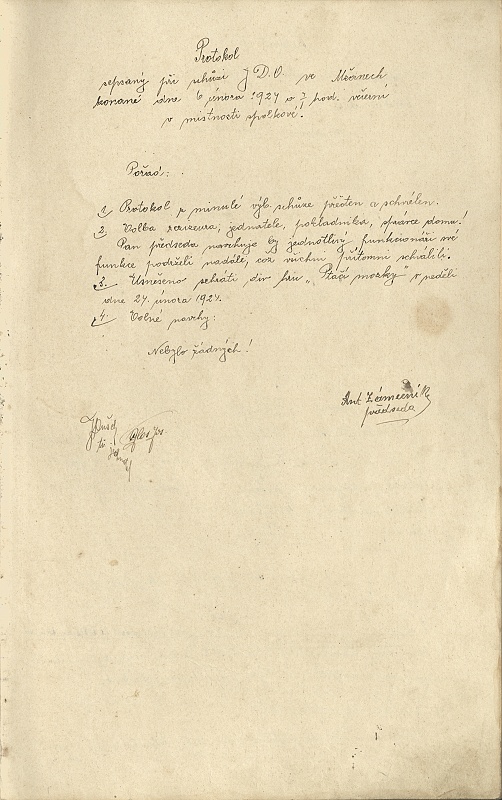 Protokol
sepsaný při schůzi J D.O. ve Měčanech
konané dne 6 února 1924 o 7 hod. večerní
v místnosti spolkové.
Pořad:
1. Protokol z minulé výb. schůze přečten a schválen.
2. Volba revizora, jednatele, pokladníka, správce domu!
Pan předseda navrhuje by jednotliví funkcionáři své
funkce podrželi nadále, což všichni přítomni schválili.
3. Usnešeno sehráti div. hru „Ptačí mozky" v neděli
dne 24. února 1924.
4. Volné návrhy:
Nebylo žádných!
Ant Zámečník
předseda